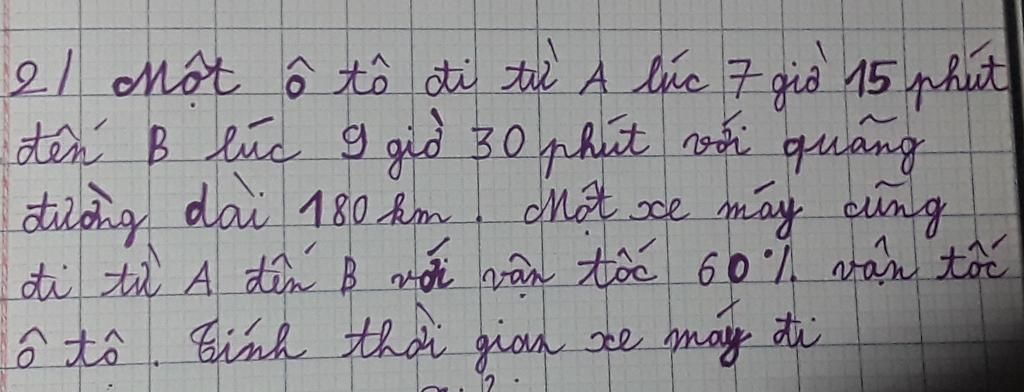 2/ Một ô tô đi từ A lúc 7 giờ 15 phút
đến B lúc 9 giờ 30 phút với quãng
đường dài 180 km. Một xe máy cũng
đi từ A đến B với vận tốc 60% vận tốc
ô tô. Tính thời gian xe máy đi